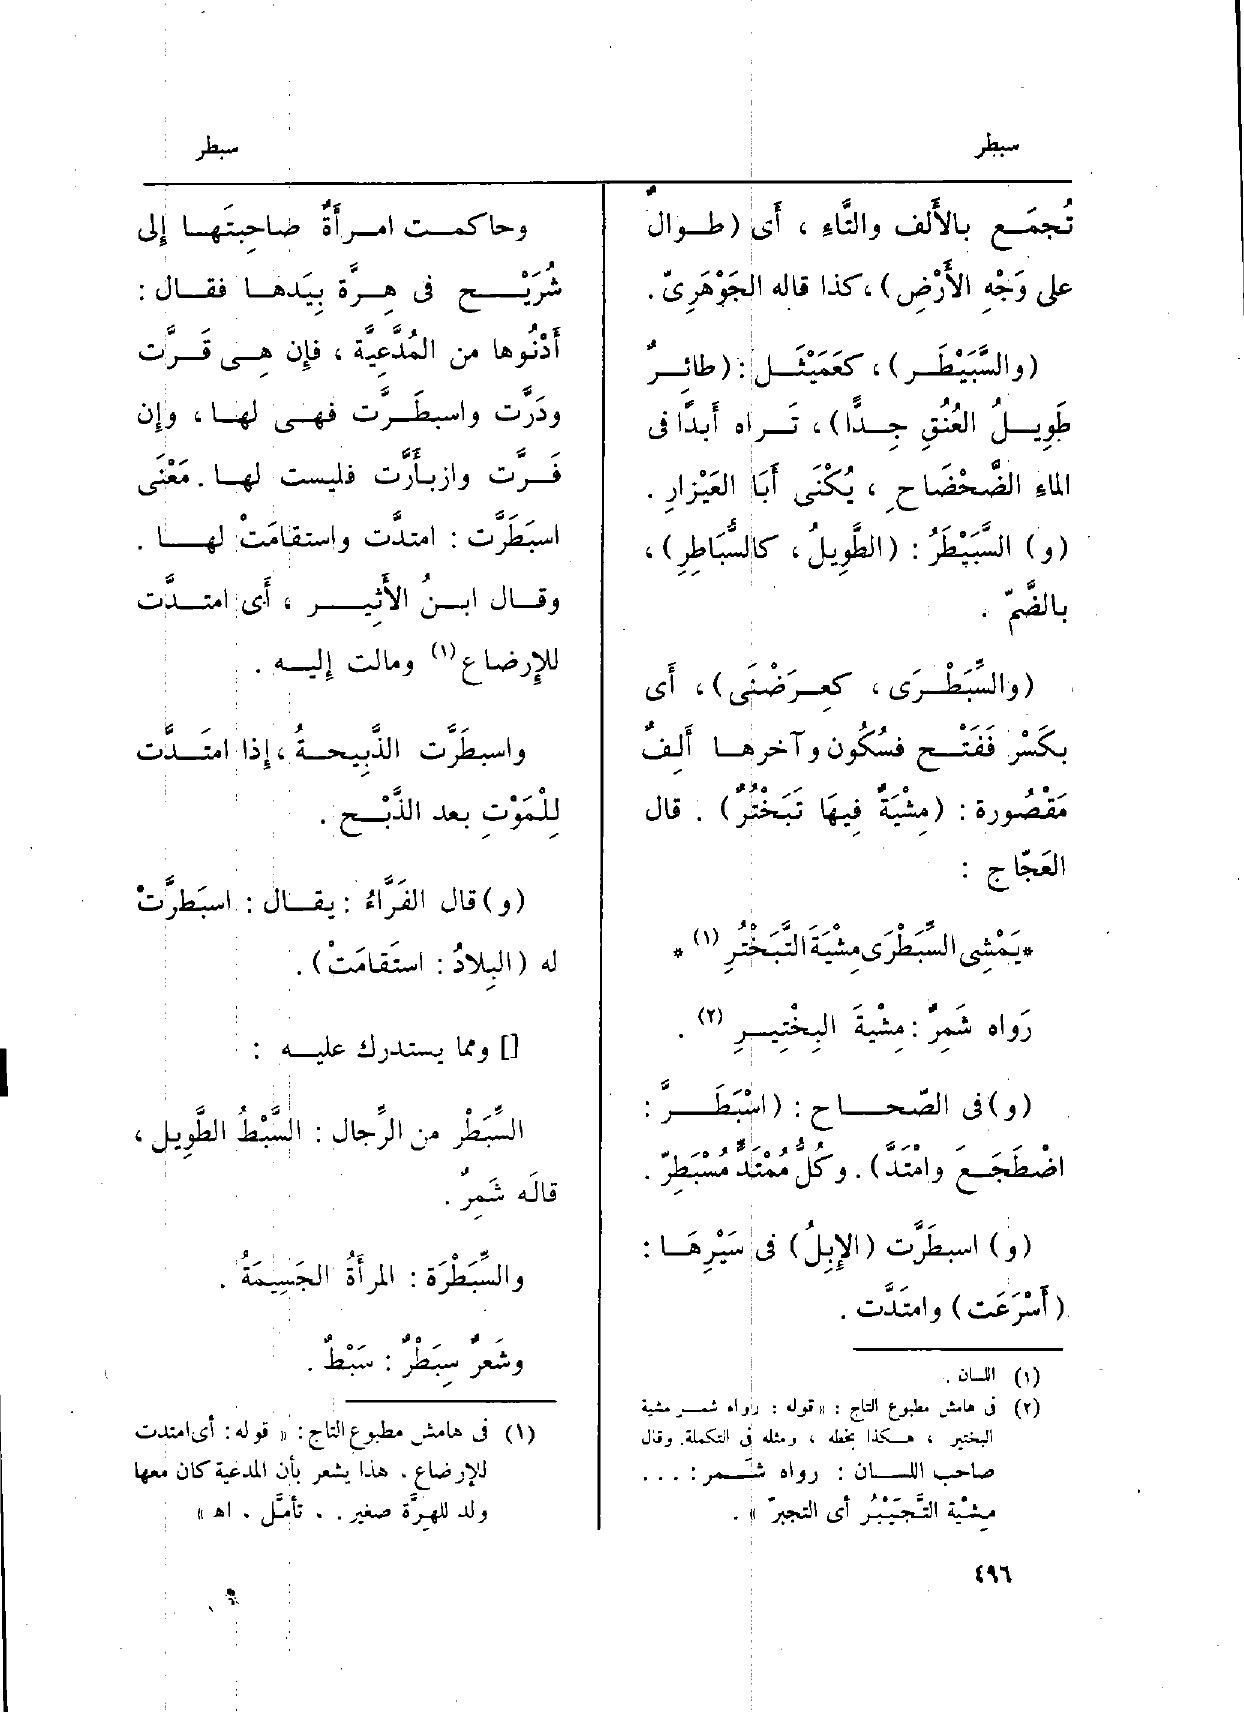 سبطر
سبطر
تُجمَع بالأَلف والتَّاءِ ، أَى (طوالٌ
على وَجْهِ الأَرْضِ) ، كذا قاله الجَوْهَرِىّ .
(والسَّبَيْطَر) ، كعَمَيْثَل : (طائِرٌ
طَوِيلُ العُنُقِ جِدًّا) ، تَراه أَبدًا فى
الماءِ الضَّحْضَاحِ ، يُكْنَى أَبَا العَيْزارِ .
(و) السَّبَيْطَرُ : (الطَّوِيلُ ، كالسُّبَاطِرِ) ،
بالضَّمّ .
(والسِّبَطْرَى ، كعِرَضْنَى) ، أَى
بكَسْر فَفَتْح فسُكُون وآخرها أَلِفٌ
مَقْصُورة : (مِشْيَةٌ فِيهَا تَبَخْتُرٌ) . قال
العَجّاج :
* يَمْشِى السِّبَطْرَى مِشْيَةَ التَّبَخْتُرِ (١) *
رَواه شَمِرٌ : مِشْيَةَ البِخْتِيرِ (٢) .
(و) فى الصّحاح : (اسْبَطَرَّ :
اضْطَجَعَ وامْتَدَّ) . وكُلُّ مُمْتَدٍّ مُسْبَطِرّ .
(و) اسبطَرَّت (الإِبِلُ) فى سَيْرِهَا :
(أَسْرَعَت) وامتَدَّت .
(١) اللسان .
(٢) فى هامش مطبوع التاج : « قوله : رواه شمر مشية
البختير ، هكذا بخطه ، ومثله فى التكملة . وقال
صاحب اللسان : رواه شَمر : . . .
مِشْيَة التَّجَيْبُرِ أى التجبرّ » .
٤٩٦
وحاكمت امرأَةٌ صاحِبتَها إِلى
شُرَيْح فى هِرَّة بِيَدها فقال :
أَدْنُوها من المُدَّعِيَّة ، فإِن هِى قَرَّت
ودَرَّت واسبطَرَّت فهى لها ، وإِن
فَرَّت وازبأَرَّت فليست لها . مَعْنَى
اسبَطَرَّت : امتدَّت واستقامَتْ لها .
وقال ابنُ الأَثِير ، أَى امتدَّت
للإِرضاع (١) ومالت إِليه .
واسبطَرَّت الذَّبِيحةُ ، إِذا امتَدَّت
لِلْمَوْتِ بعد الذَّبْح .
(و) قال الفَرّاءُ : يقال : اسبَطَرَّتْ
له (البِلادُ : استَقامَتْ) .
[] ومما يستدرك عليه :
السِّبَطْر من الرِّجال : السَّبْطُ الطَّوِيل ،
قالَه شَمِرٌ .
والسِّبَطْرَة : المرأَةُ الجَسِيمَةُ .
وشَعرٌ سِبَطْرٌ : سَبْطٌ .
(١) فى هامش مطبوع التاج : « قوله : أى امتدت
للإرضاع . هذا يشعر بأن المدعية كان معها
ولد للهرَّة صغير . . تأمَّل . اه »